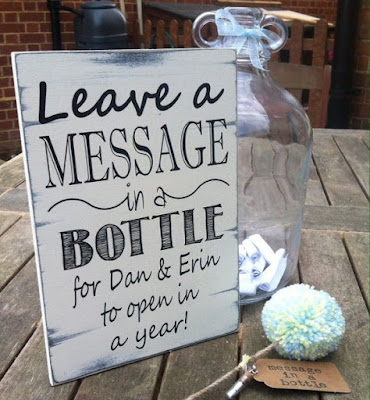 Leave a
MESSAGE
in a
BOTTLE
for Dan & Erin
to open in
a year!
message
in a
bottle